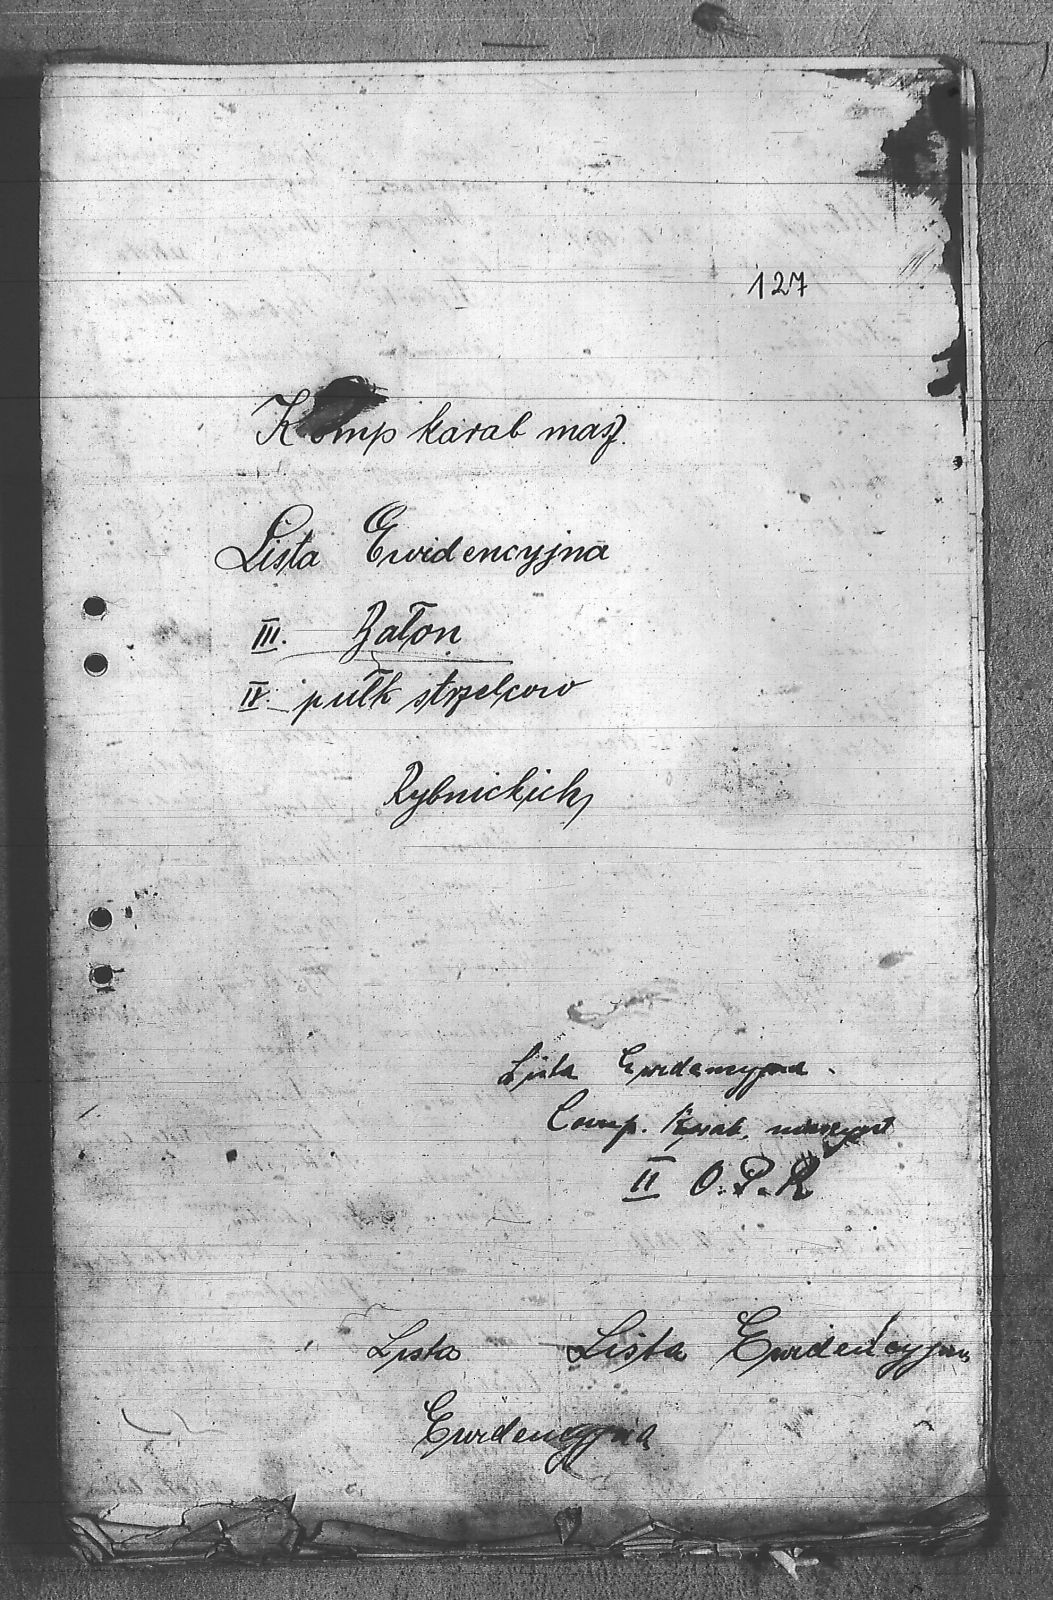 127
Komp karab masz.
Lista Ewidencyjna
III. Bałon
IV. pułk strzelcow
Rybnickich
Lista Ewidencyjna.
Comp. Karab.
II O.P.R
Lista Lista Ewideńcyjna
Ewidencyjna